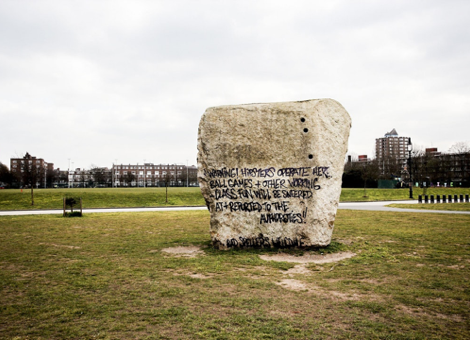 WARNING! HIPSTERS OPERATE HERE
BALL GAMES + OTHER WORKING
CLASS FUN WILL BE SNEERED
AT + REPORTED TO THE
AUTHORITIES!!